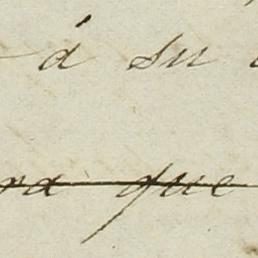 á su
ra que